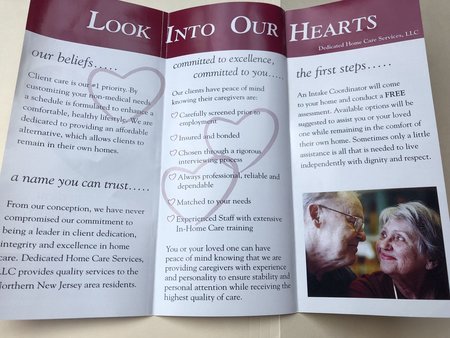 LOOK INTO OUR HEARTS
Dedicated Home Care Services, LLC
our beliefs.....
Client care is our #1 priority. By
customizing your non-medical needs
a schedule is formulated to enhance a
comfortable, healthy lifestyle. We are
dedicated to providing an affordable
alternative, which allows clients to
remain in their own homes.
a name you can trust.....
From our conception, we have never
compromised our commitment to
being a leader in client dedication,
integrity and excellence in home
care. Dedicated Home Care Services,
LLC provides quality services to the
Northern New Jersey area residents.
committed to excellence,
committed to you.....
Our clients have peace of mind
knowing their caregivers are:
Carefully screened prior to
employment
Insured and bonded
Chosen through a rigorous
interviewing process
Always professional, reliable and
dependable
Matched to your needs
Experienced Staff with extensive
In-Home Care training
You or your loved one can have
peace of mind knowing that we are
providing caregivers with experience
and personality to ensure stability and
personal attention while receiving the
highest quality of care.
the first steps.....
An Intake Coordinator will come
to your home and conduct a FREE
assessment. Available options will be
suggested to assist you or your loved
one while remaining in the comfort of
their own home. Sometimes only a little
assistance is all that is needed to live
independently with dignity and respect.